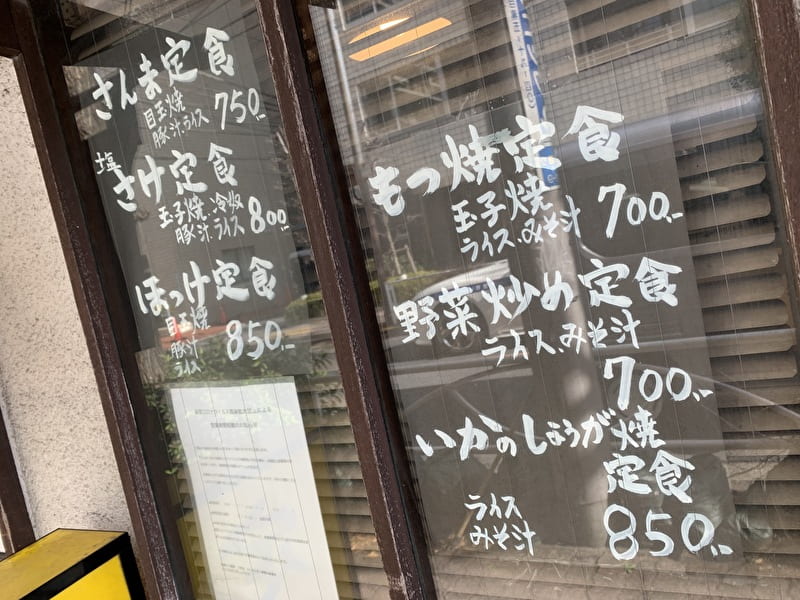 さんま定食
目玉焼
豚汁ライス
750.-
塩
さけ定食
玉子焼、冷奴
豚汁、ライス
800.-
ほっけ定食
目玉焼
豚汁
ライス
850.-
もつ焼定食
玉子焼
ライス、みそ汁
700.-
野菜炒め定食
ライス、みそ汁
700.-
いかのしょうが焼
定食
ライス
みそ汁
850.-